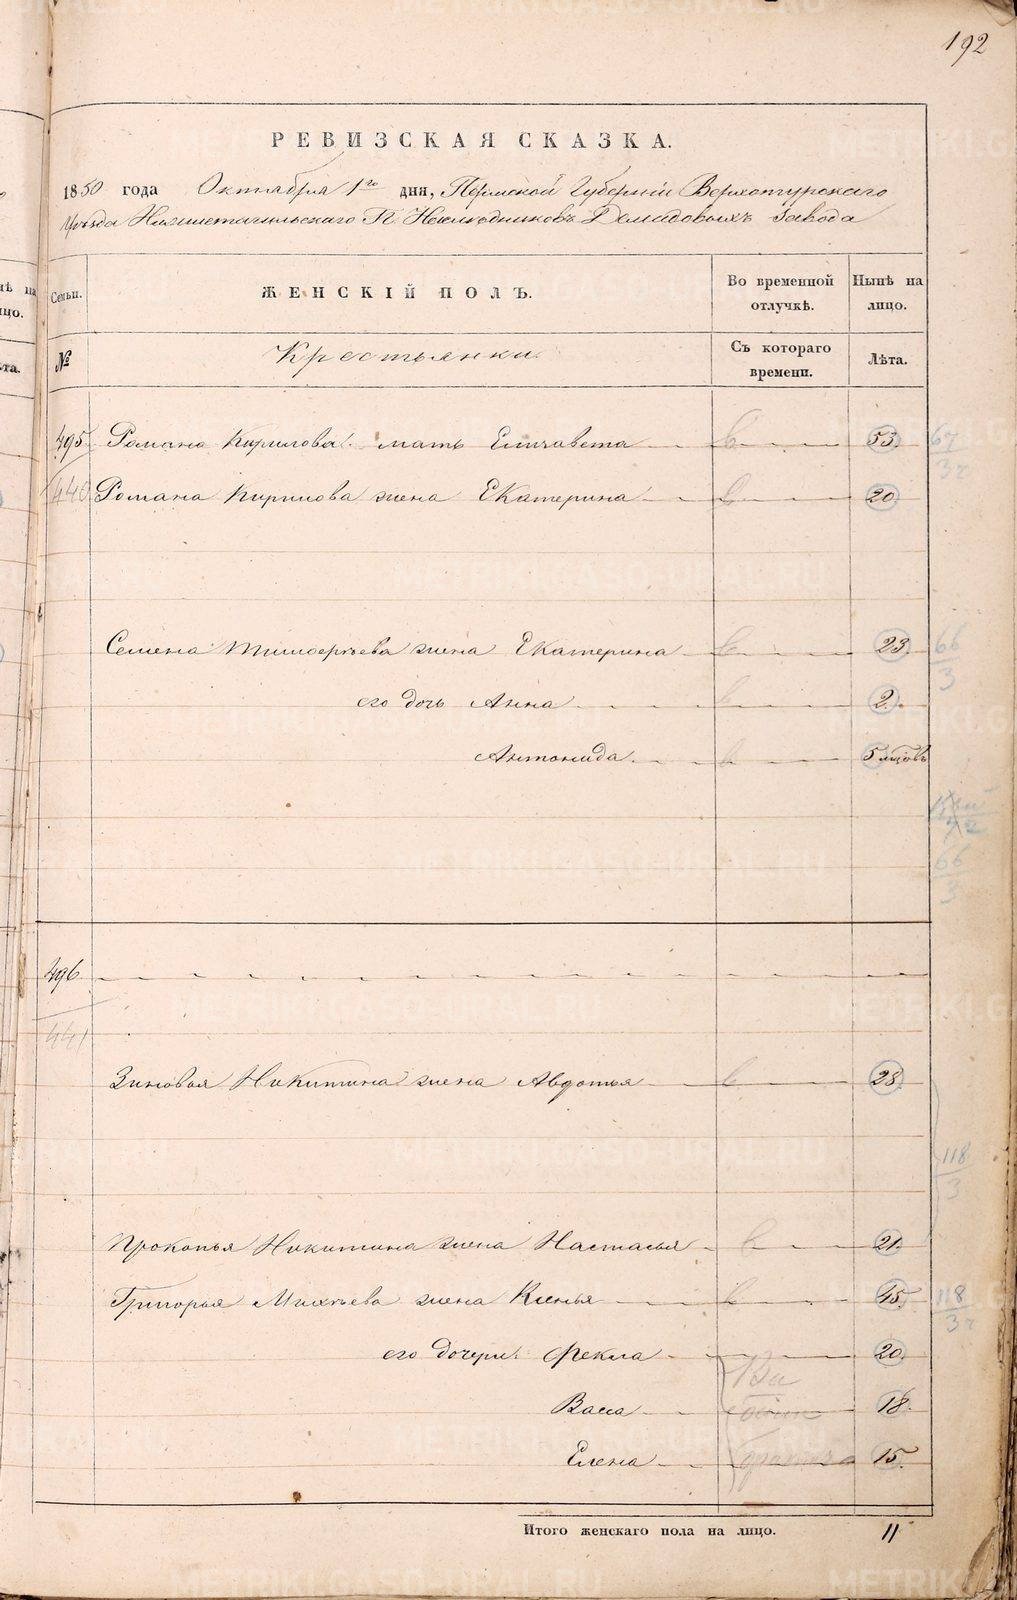 192
РЕВИЗСКАЯ СКАЗКА.
1850 года Октября 1го дня, Пермской Губерніи Верхотурскаго
Уѣзда Нижнетагильскаго Г. Наслѣдниковъ Демидовыхъ завода
Семьи. ЖЕНСКІЙ ПОЛЪ. Во временной отлучкѣ. Нынѣ на лицо.
№ Крестьянки. Съ котораго времени. Лѣта.
495. Романа Кирилова мать Елизавета 53. 67
3ч
440 Романа Кирилова жена Екатерина 20.
Семена Тимоѳеева жена Екатерина 23. 66
3
его дочь Анна 2.
Антонида. 5 мцовъ
66
3
496.
441
Зиновья Никитина жена Авдотья 28.
118
3
Прокопья Никитина жена Настасья 21.
Григорья Михѣева жена Ксенья 45. 118
3ч
его дочери Фекла 20.
Васа 18.
Елена 15.
Итого женскаго пола на лицо. 11
METRIKI.GASO-URAL.RU